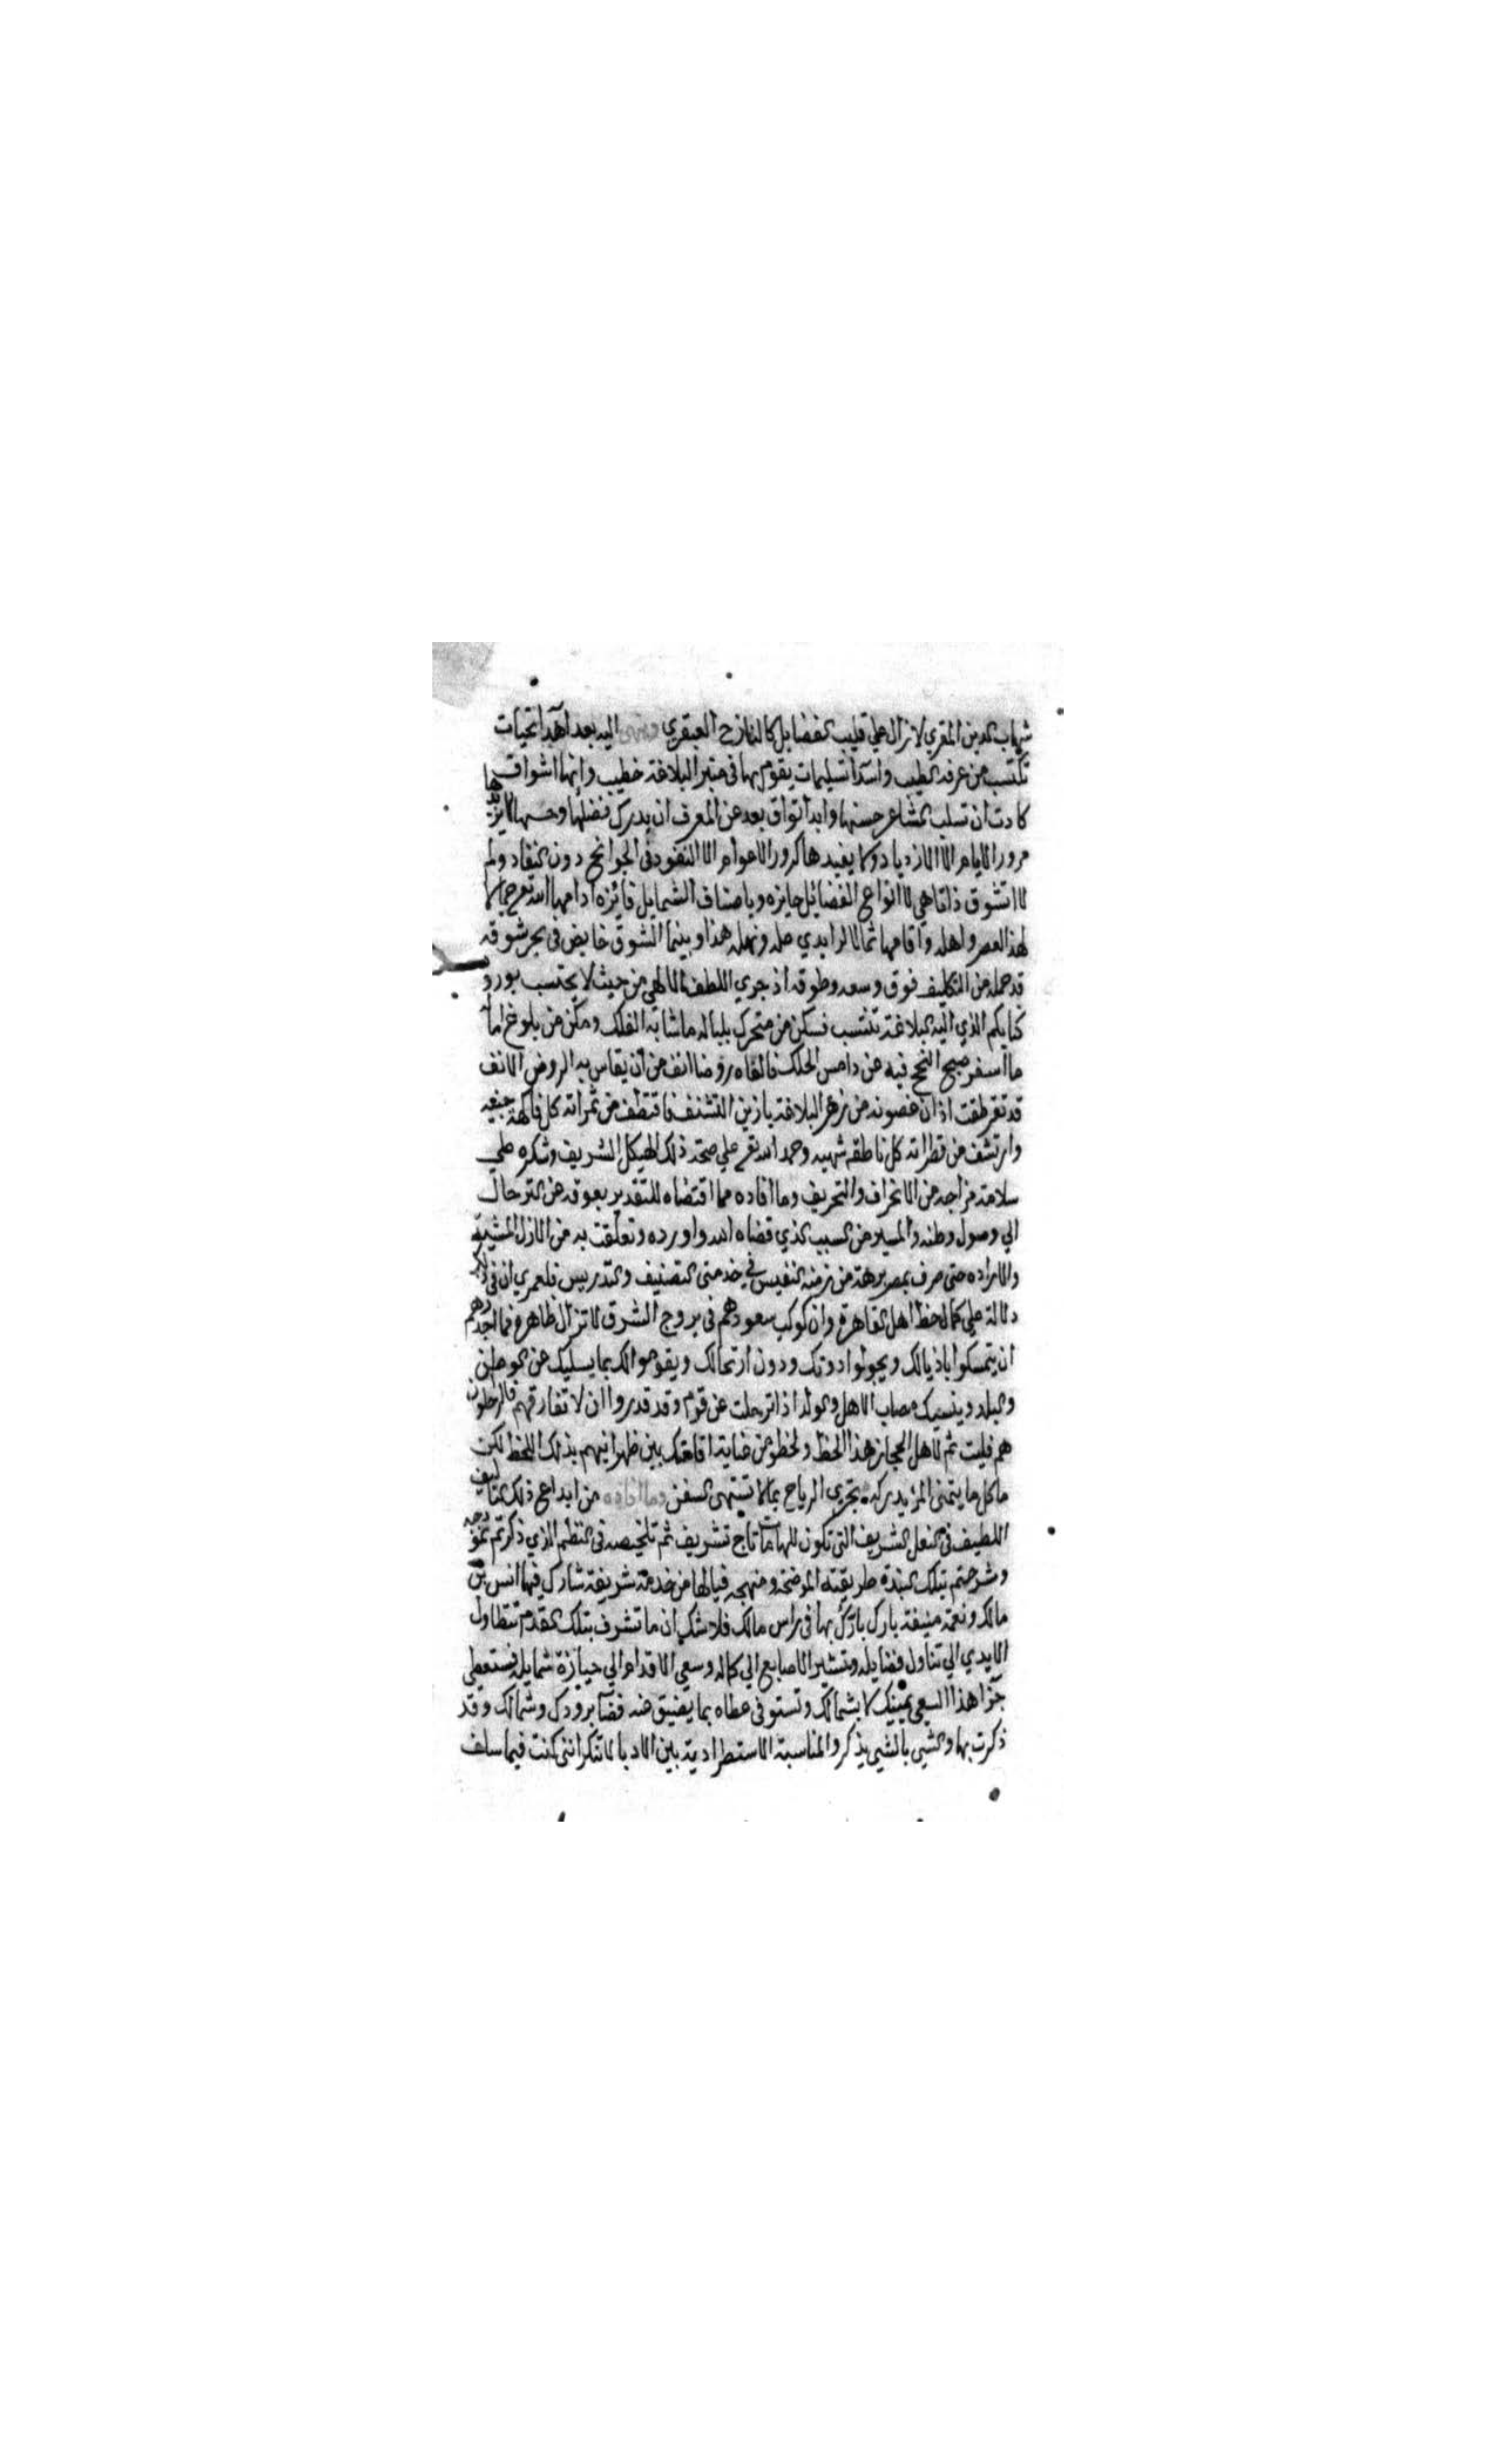 شهاب الدين المقري لازال علي قليب الفضايل كالنازح العبقري وينهي اليه بعد اهدا تحيات
تكتسب من عرفه الطيب واسدا تسليمات يقوم بها في منبر البلاغة خطيب وانها اشواق
كادت ان تسلب المشاعر حسنها وابدا تواق بعد عن المعرف ان يدرك فضلها وحسها لا يزيدها
مرور الايام الا الازدياد ولا يفيدها كرور الاعوام الا النفود في الجوانح دون النفاد ولم
لا اتشوق ذاتا هي لانواع الفضائل حايزه وباصناف الشمايل فائزه ادامها الله تع جمالا
لهذا العصر واهله واقامها ثمالا لرايدي عله ونهله هذا وبينما الشوق خايض في بحر شوقه
قد حمله من التكليف فوق وسعه وطوقه اذ جري اللطف الالهي من حيث لا يحتسب بورود
كتابكم الذي اليه البلاغة تنتسب فسكن من متحرك بلباله ما شابه الفلك ومكن من بلوغ اماله
ما اسفر صبح النجح فيه عن دامس الحلك فالفاه روضا انف من ان يقاس به الروض الانف
قد تقرطقت اذان غصونه من زهر البلاغة بازين التشنف فاقتطف من ثمراته كل فاكهة جنيه
وارتشف من قطراته كل ناطقه شهيه وحمد الله تع علي صحة ذلك الهيكل الشريف وشكره علي
سلامة مزاجه من الانحراف والتحريف وما افاده مما اقتضاه للتقدير بعوقه عن الترحال
الي وصول وطنه والمسير من السبب الذي قضاه الله واورده وتعلقت به من الازل المشية
والاراده حتى صرف بمصر برهة من زمنه النفيس في خدمتي التصنيف والتدريس فلعمري ان في ذلك
دلالة علي كمال حظ اهل القاهرة وان كوكب سعودهم في بروج الشرق لا تزال ظاهرة فما اجدرهم
ان يتمسكوا باذيالك ويحولوا دونك ودون ارتحالك ويقوموا لك بما يسليك عن الوطن
والبلد وينسيك مصاب الاهل والولد اذا ترحلت عن قوم وقد قدروا ان لا تفارقهم فالراحلون
هم فليت ثم لاهل الحجاز هذا الحظ ولحظو من عناية اقامتك بين ظهرانيهم بذلك اللحظ لكن
ما كل ما يتمنى المرء يدركه تجري الرياح بما لا تشتهي السفن وما افاده من ابداع ذلك التاليف
اللطيف في النعل الشريف التي تكون للهامات تاج تشريف ثم تلخيصه في النظم الذي ذكرتم نموذجه
وشرحتم بتلك النبذة طريقته الموضحة ومنهجه فيالها من خدمة شريفة شارك فيها انس بن
مالك ونعمة منيفة بارك بارئك بها في راس مالك فلا شك ان ما تشرف بتلك القدم تتطاول
الايدي الي تناول فضايله وتشير الاصابع الي كماله وسعي الاقدام الي حيازة شمايله فستعطي
جزا هذا السعي بيمينك لا بشمالك وتستوفي عطاه بما يضيق عنه فضا برودك وشمالك وقد
ذكرت بها والشي بالشي يذكر والمناسبة الاستطرادية بين الادبا لا تنكر انني كنت فيما سلف